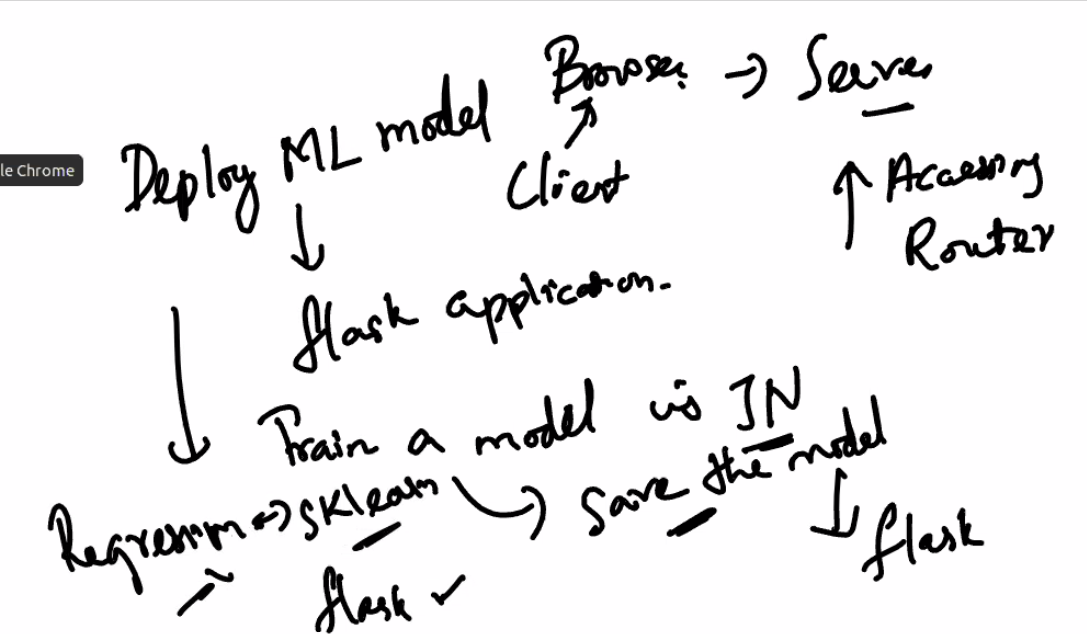 Browser → Server
Deploy ML model
Client
Accessing
Router
le Chrome
flask application.
Train a model in JN
Regression → sklearn → save the model
flask
flask ✓